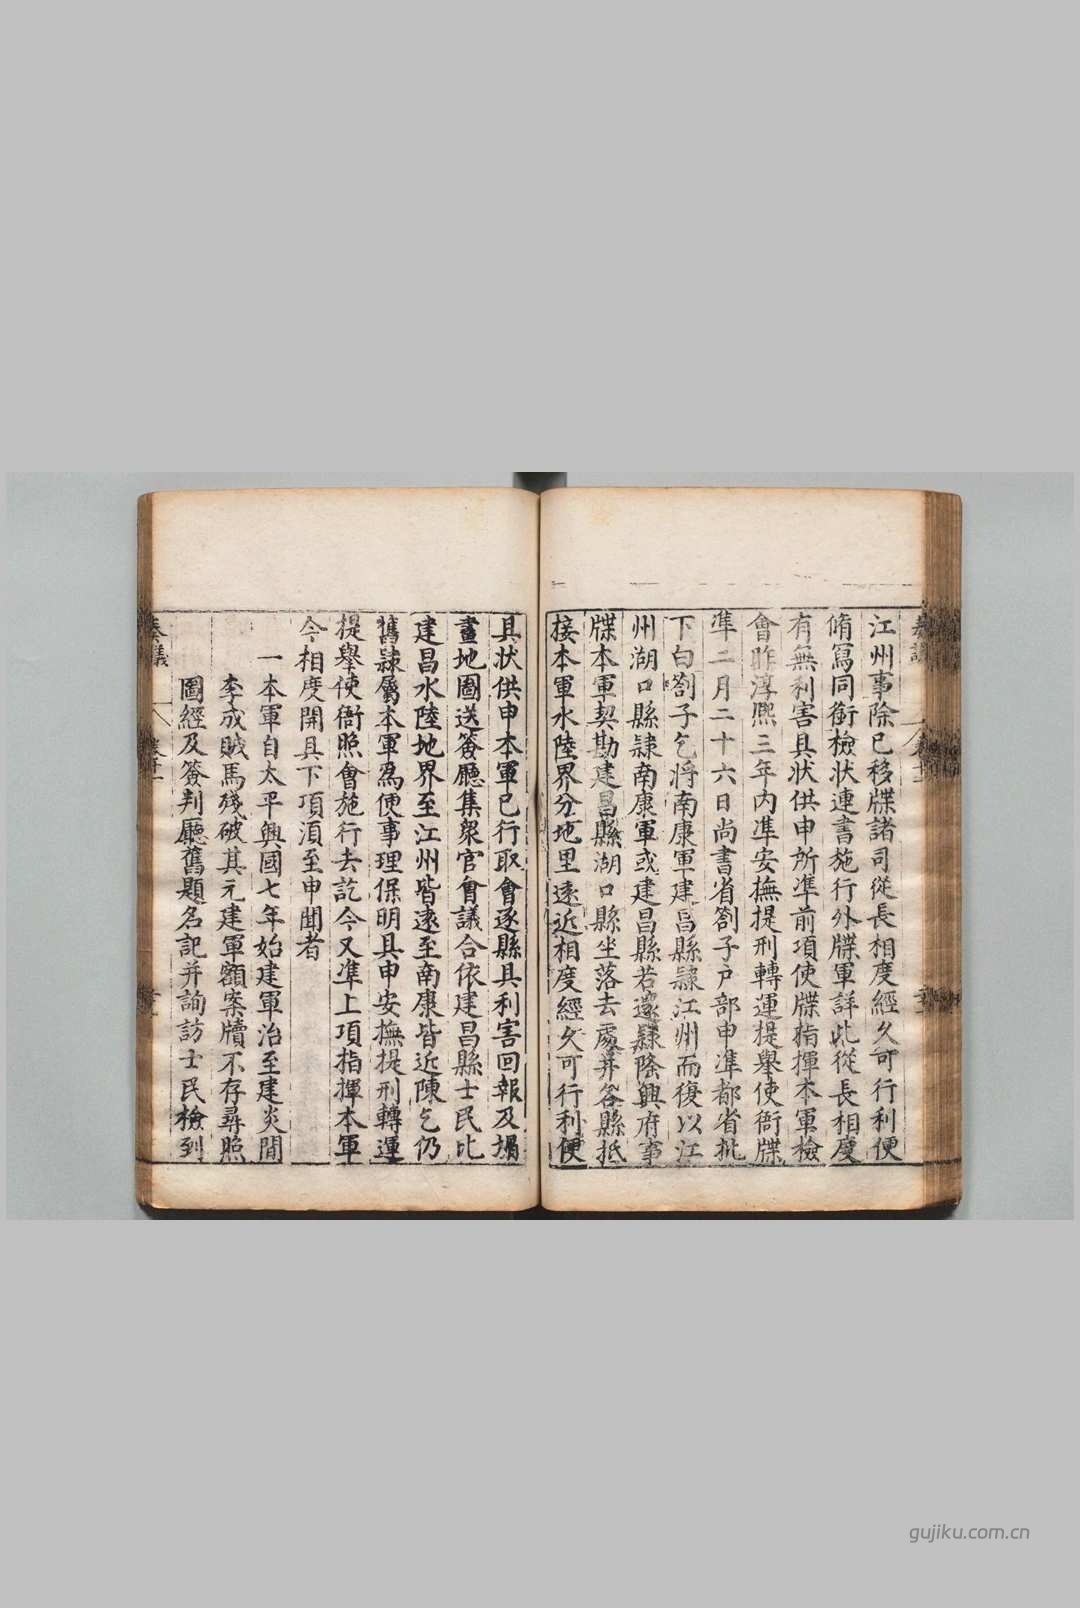 江州事除已移牒諸司從長相度經久可行利便
脩寫同銜檢狀連書施行外牒軍詳此從長相度
有無利害具狀供申所準前項使牒指揮本軍檢
會昨淳熙三年內準安撫提刑轉運提舉使衙牒
準二月二十六日尚書省劄子戶部申準都省批
下白劄子乞將南康軍建昌縣隸江州而復以江
州湖口縣隸南康軍或建昌縣若還隸隆興府事
牒本軍契勘建昌縣湖口縣坐落去處并各縣抵
接本軍水陸界分地里遠近相度經久可行利便
具狀供申本軍已行取會逐縣具利害回報及塌
畫地圖送簽廳集衆官會議合依建昌縣士民比
建昌水陸地界至江州皆遠至南康皆近陳乞仍
舊隸屬本軍爲便事理保明具申安撫提刑轉運
提舉使衙照會施行去訖今又準上項指揮本軍
今相度開具下項湏至申聞者
一本軍自太平興國七年始建軍治至建炎間
李成賊馬殘破其元建軍額案牘不存尋照
圖經及簽判廳舊題名記并詢訪士民檢到
奏議
gujiku.com.cn